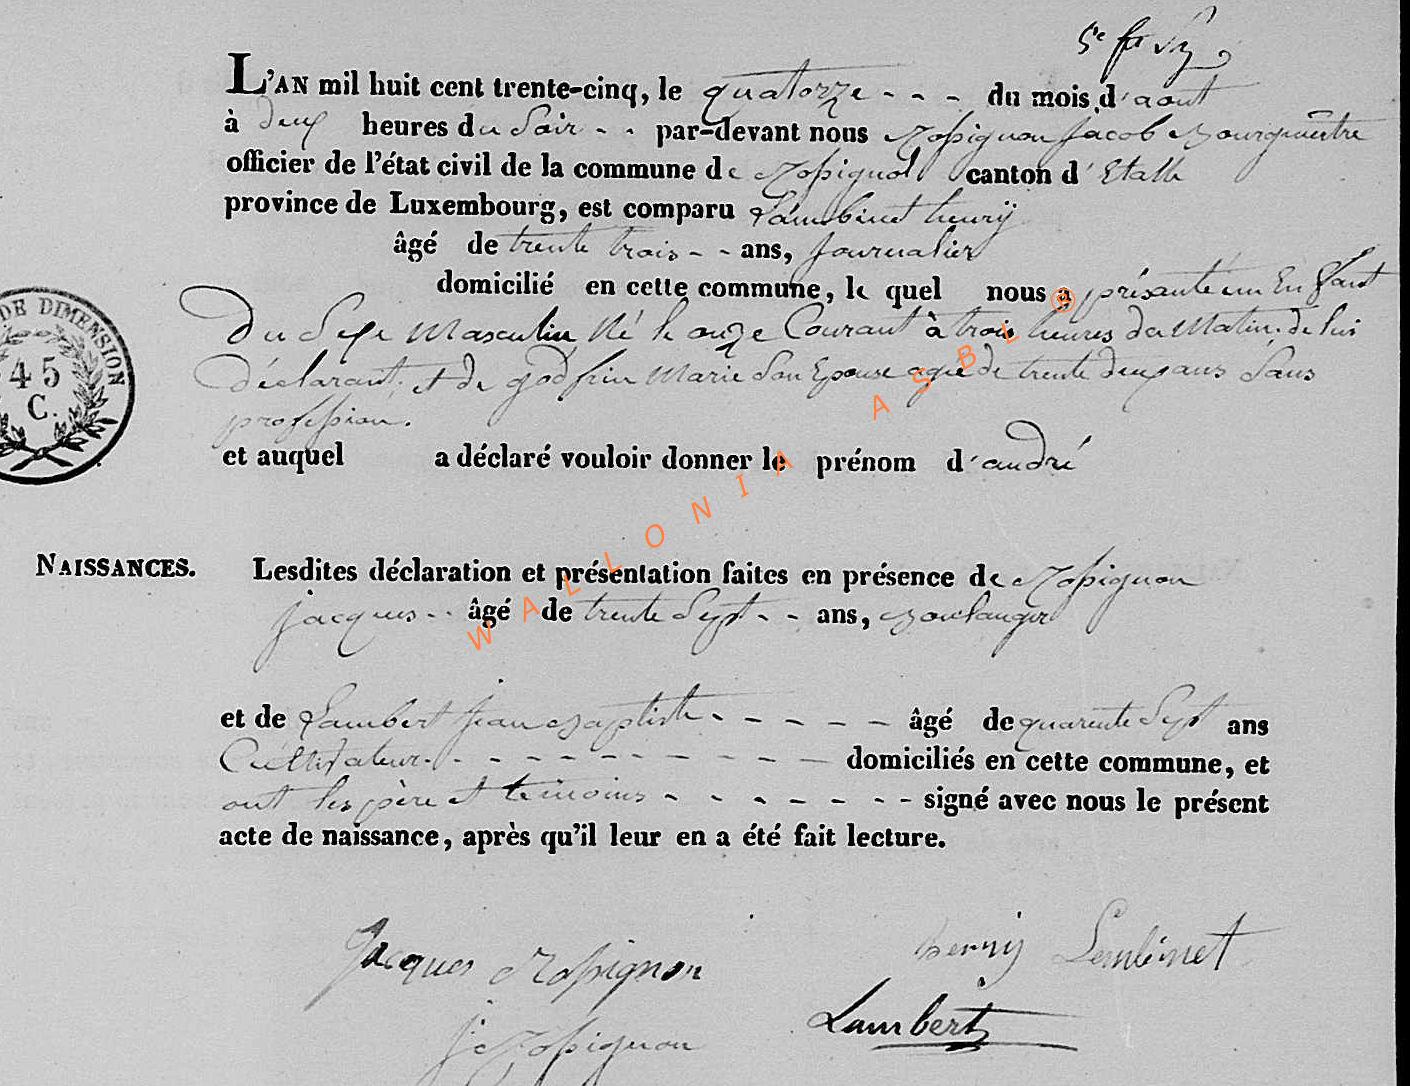 L'AN mil huit cent trente-cinq, le quatorze - - - du mois d'aout
à deux heures du Soir - - par-devant nous Rossignon Jacob Bourgmestre
officier de l'état civil de la commune de Rossignol canton d'Etalle
province de Luxembourg, est comparu Lambinet henrÿ
âgé de trente trois - - ans, Journalier
domicilié en cette commune, le quel nous a présenté un Enfant
DE DIMENSION
45
C.
Du Sexe Masculin Né le onze Courant à trois heures du Matin, de lui
declarant, et de godfrin Marie Son Epouse agée de trente deux ans Sans
profession.
et auquel a déclaré vouloir donner le prénom d'andré
WALLONIA ASBL ©
NAISSANCES.
Lesdites déclaration et présentation faites en présence de Rossignon
jacques - - âgé de trente Sept - - ans, Boulanger
et de Lambert jean Baptiste - - - - - âgé de quarente Sept ans
Cultivateur - - - - - - - - - domiciliés en cette commune, et
ont les père et témoins - - - - - - - signé avec nous le présent
acte de naissance, après qu'il leur en a été fait lecture.
Jacques Rossignon henrÿ Lambinet
Lambert
J Rossignon